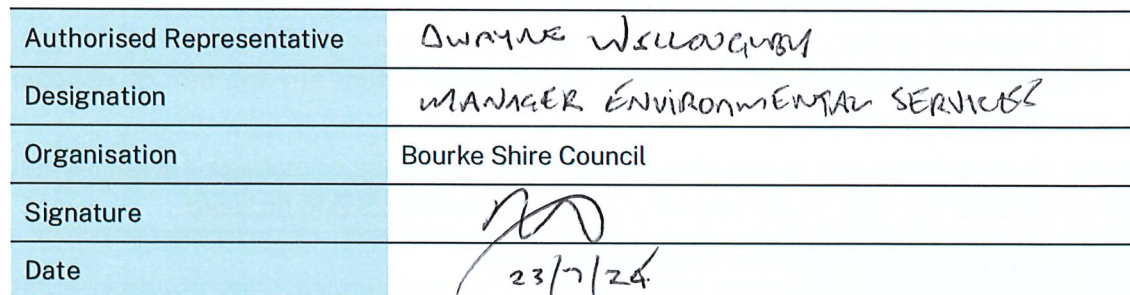 Authorised Representative DWAYNE WILLOUGHBY
Designation MANAGER ENVIRONMENTAL SERVICES
Organisation Bourke Shire Council
Signature
Date 23/7/24